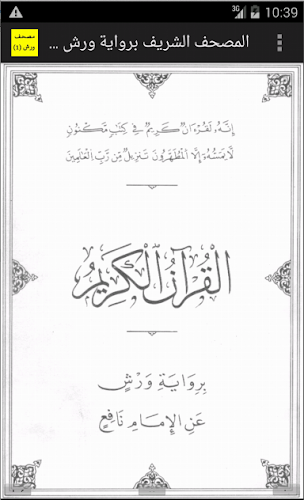 3G 10:39
مصحف
ورش (1)
المصحف الشريف برواية ورش ...
إِنَّهُۥ لَقُرْءَانٌ كَرِيمٌ فِى كِتَٰبٍ مَّكْنُونٍ
لَّا يَمَسُّهُۥٓ إِلَّا ٱلْمُطَهَّرُونَ تَنزِيلٌ مِّن رَّبِّ ٱلْعَٰلَمِينَ
القُرْآنُ الْكَرِيمُ
بِرِوَايَةِ وَرْشٍ
عَنِ الإِمَامِ نَافِعٍ